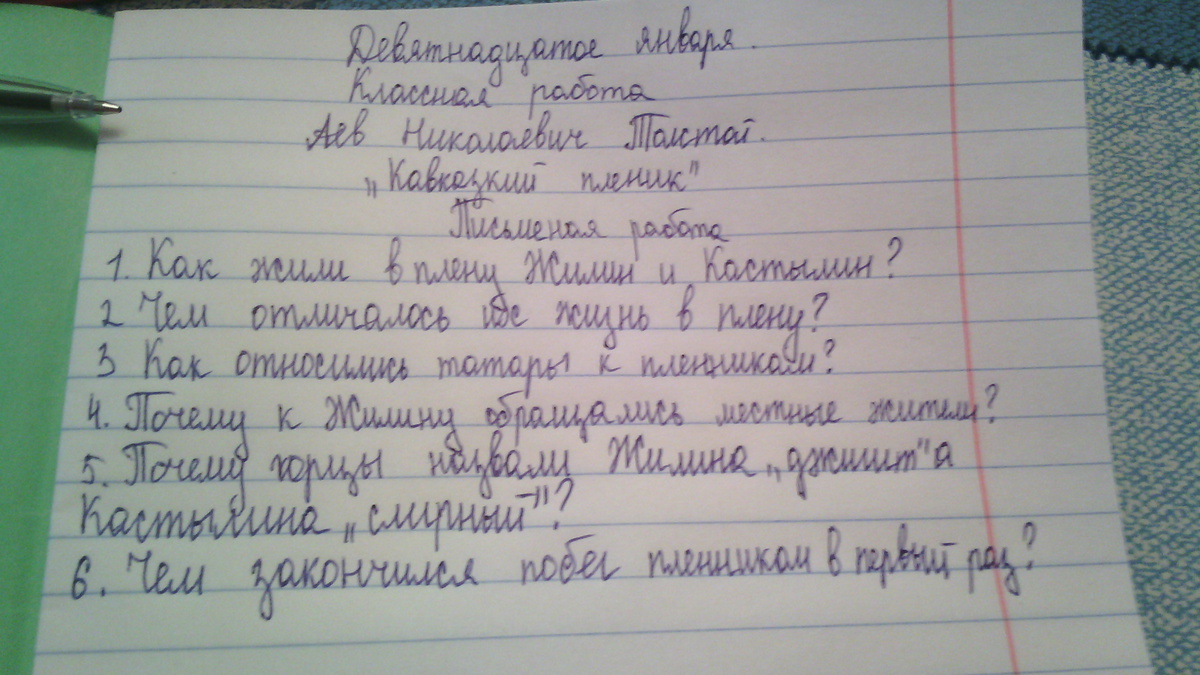 Девятнадцатое января.
Классная работа
Лев Николаевич Толстой.
„Кавказкий пленик"
Письменая работа
1. Как жили в плену Жилин и Костылин?
2 Чем отличалось их жизнь в плену?
3 Как относились татары к пленникам?
4. Почему к Жилину обращались местные жители?
5. Почему горцы назвали Жилина „джигит" а
Костылина „смирный"?
6. Чем закончился побег пленникам в первый раз?